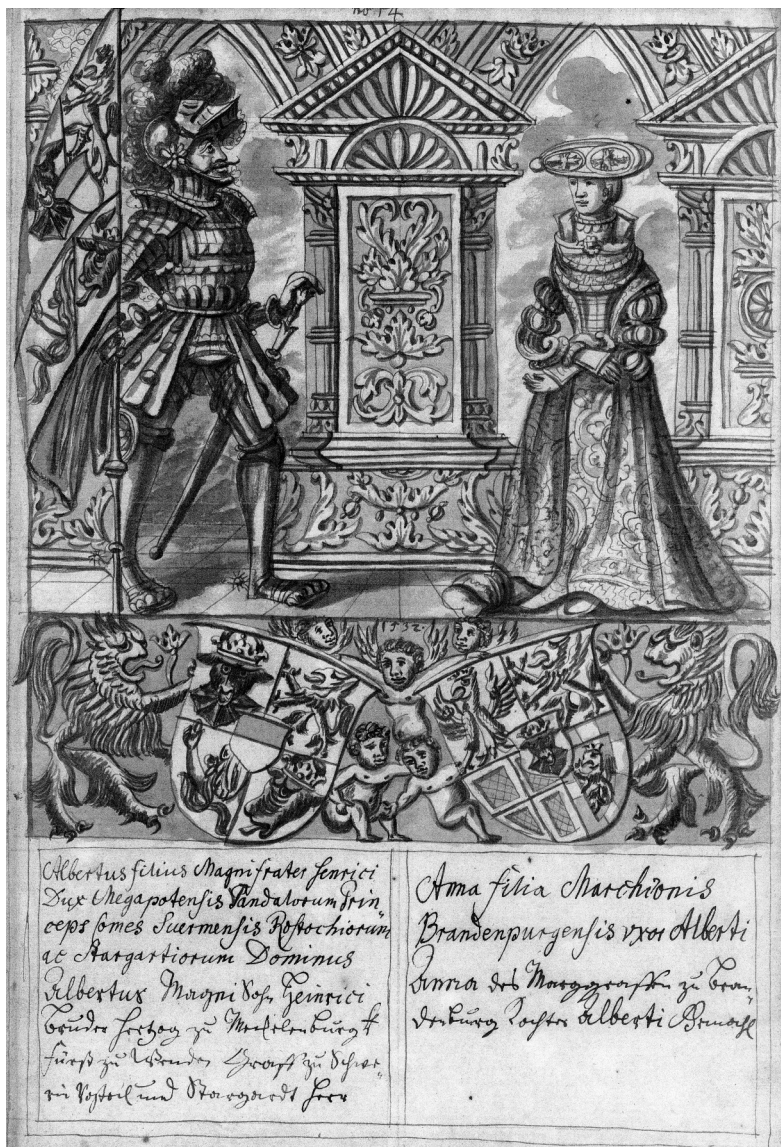 no 14
1532.
Albertus filius Magni frater Henrici
Dux Megapolensis Vandalorum Prin
ceps Comes Suermensis Rostochiorum
ac Stargartiorum Dominus
Albertus Magni Sohn Heinrici
Bruder Hertzog zu Mechelenburgk
fürst zu Wenden Graff zu Schwe-
rin Rostock und Stargardt Herr
Anna filia Marchionis
Brandenpurgensis vxor Alberti
Anna des Marggraffen zu Bran-
denburg Tochter Alberti Gemachl